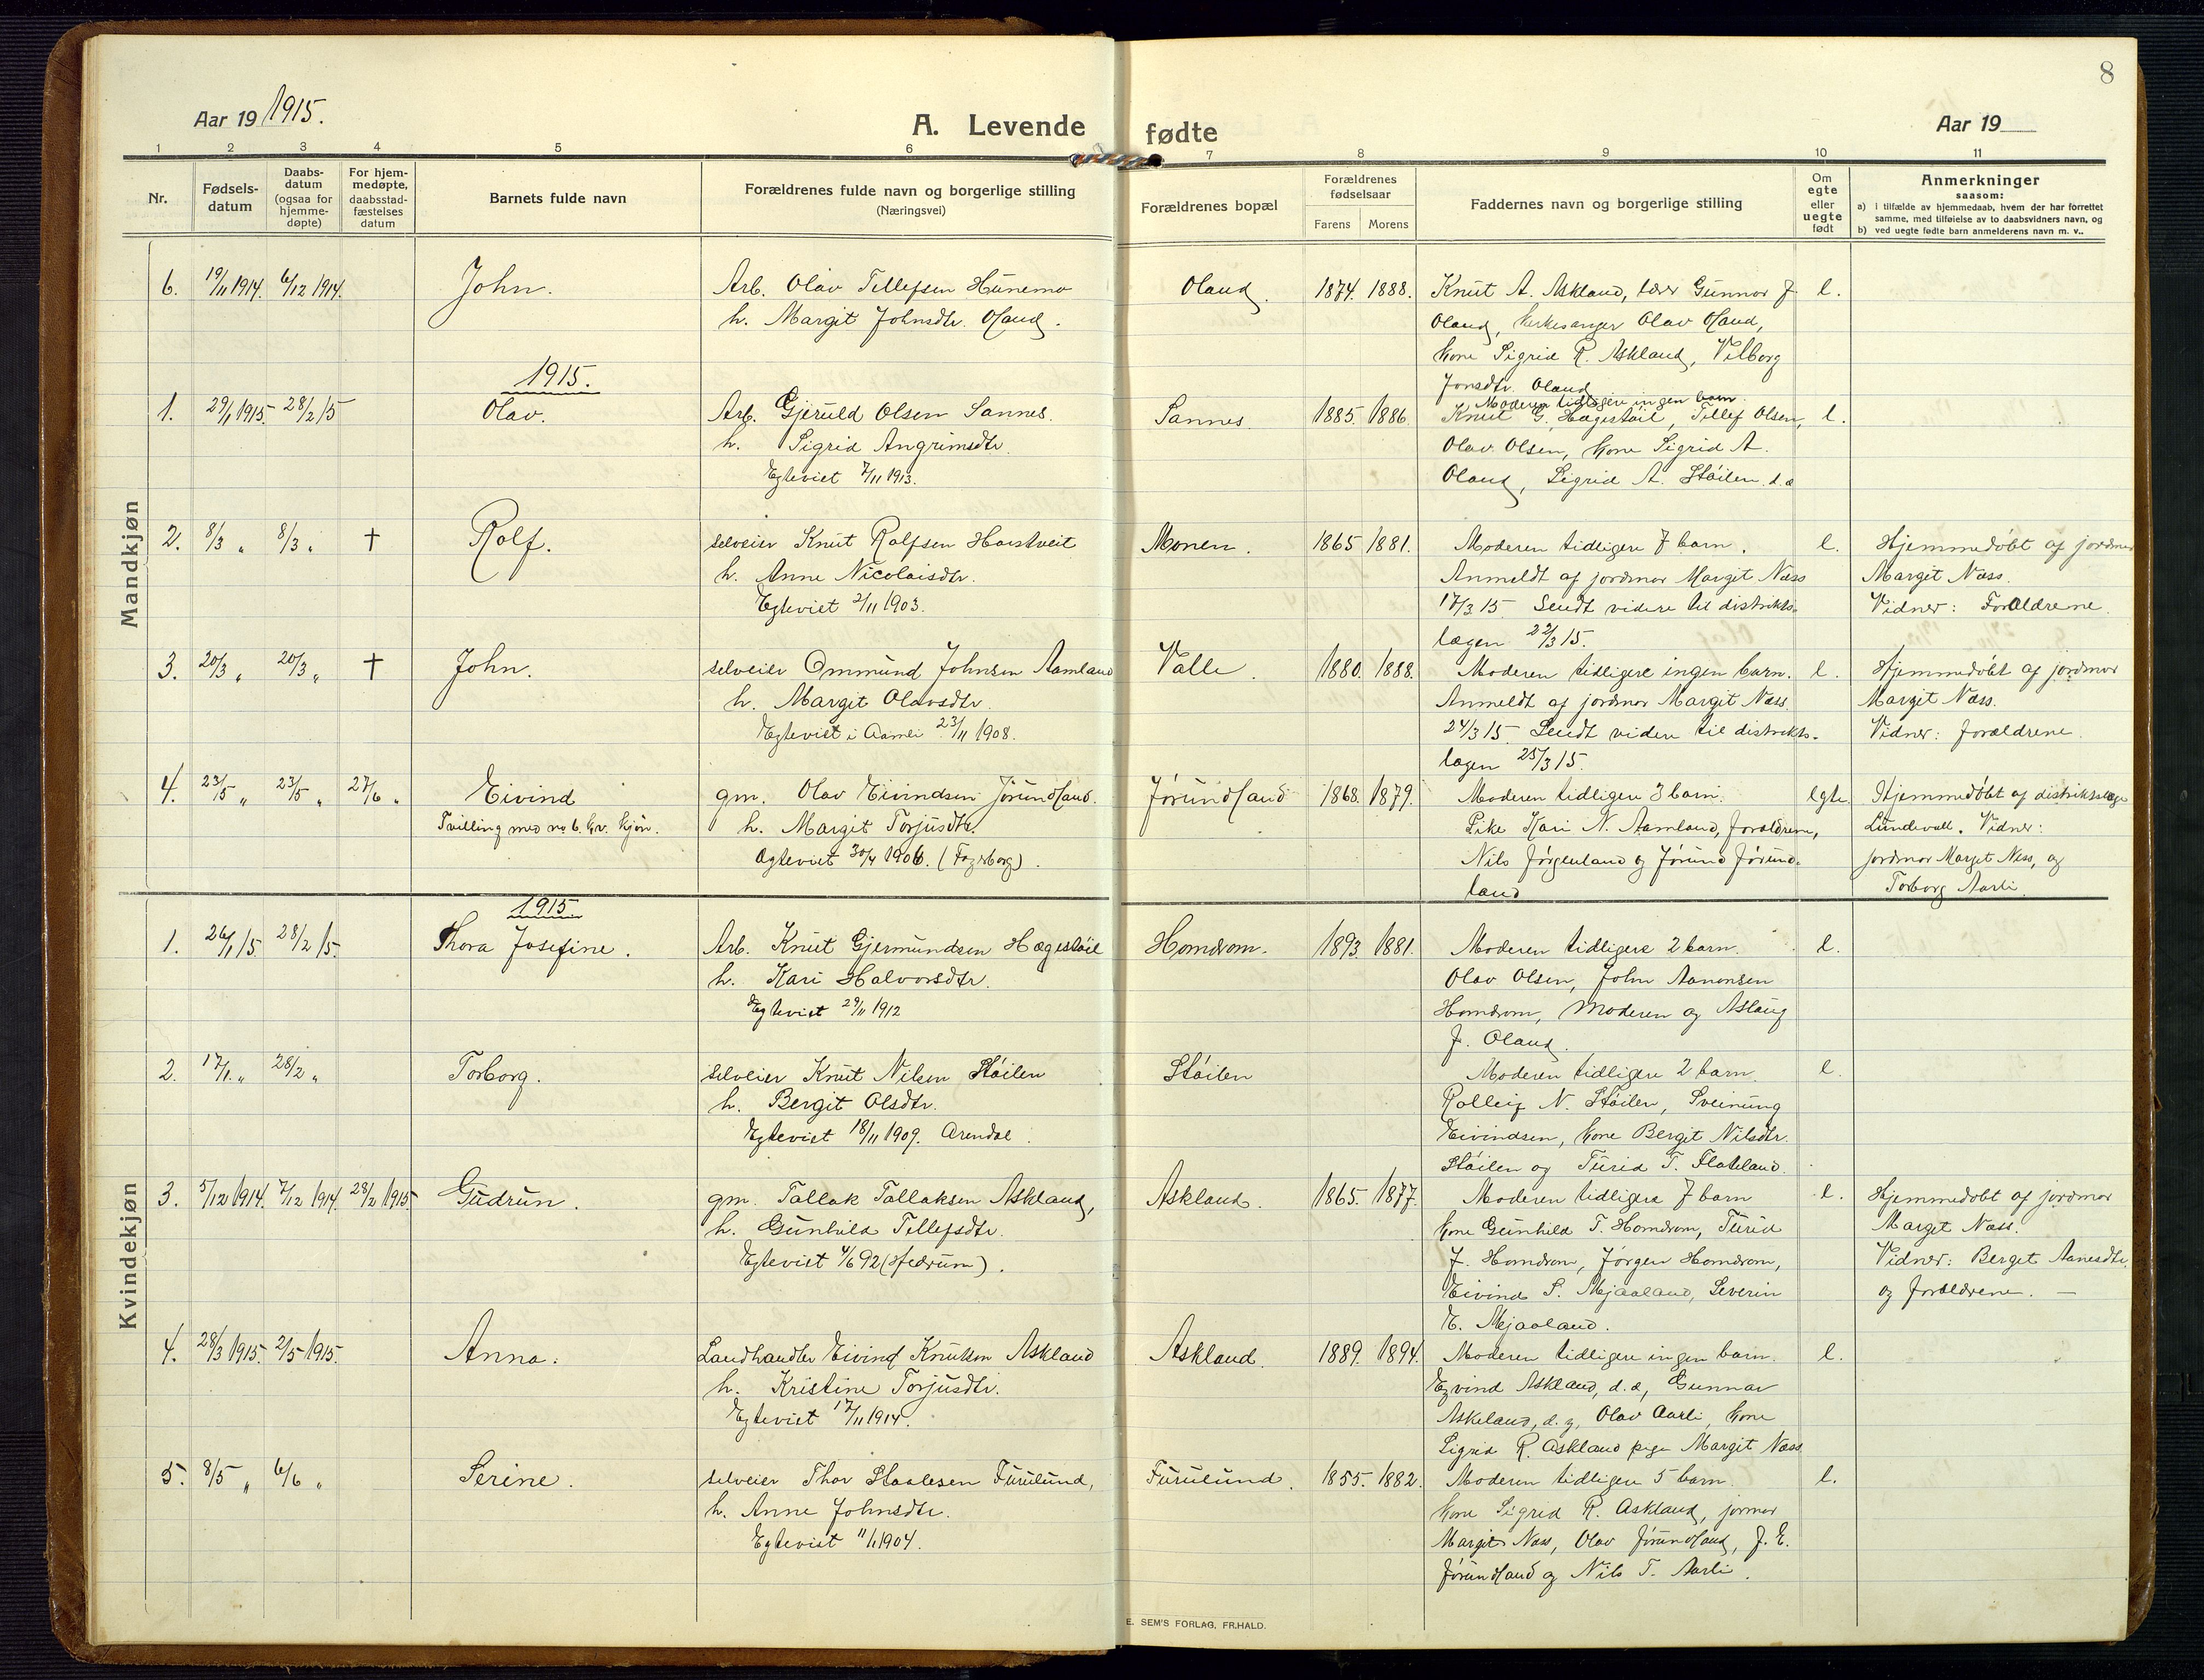 8
Aar 19 1915.
A. Levende fødte
Aar 19
1 2 3 4 5 6 7 8 9 10 11
Nr.
Fødsels-
datum
Daabs-
datum
(ogsaa for
hjemme-
døpte)
For hjem-
medøpte,
daabsstad-
fæstelses
datum
Barnets fulde navn
Forældrenes fulde navn og borgerlige stilling
(Næringsvei)
Forældrenes bopæl
Forældrenes
fødselsaar
Farens Morens
Faddernes navn og borgerlige stilling
Om
egte
eller
uegte
født
Anmerkninger
saasom:
a) i tilfælde av hjemmedaab, hvem der har forrettet
samme, med tilføielse av to daabsvidners navn, og
b) ved uegte fødte barn anmelderens navn m. v..
Mandkjøn
6. 19/11 1914. 6/12 1914. John. Arb. Olav Tellefsen Hunemo Oland. 1874. 1888. Knut A. Askland, lærer Gunnar J. e.
h. Margit Johnsdtr. Oland. Oland, kirkesanger Olav Oland,
kone Sigrid R. Askland, Vilborg
Jonsdtr. Oland
1915.
Moderen tidligere ingen barn.
1. 29/1 1915. 28/2 15 Olav. Arb. Gjeruld Olsen Sannes. Sannes. 1885. 1886. Knut G. Hægestøil, Tellef Olsen, e.
h. Sigrid Angrimsdtr. Olav Olsen, kone Sigrid A.
Egteviet 7/11 1913. Oland, Sigrid A. Støilen. d.æ
2. 8/3 " 8/3 " † Rolf. selveier Knut Rolfsen Harstveit Monen. 1865 1881. Moderen tidligere 7 barn. e. Hjemmedøbt af jordmor
h. Anne Nicolaisdtr. Anmeldt af jordmor Margit Næss Margit Næss.
Egteviet 2/11 1903. 17/3 15 Sendt videre til distrikts- Vidner: Forældrene.
lægen 22/3 15.
3. 20/3 " 20/3 " † John. selveier Ommund Johnsen Aamland Valle. 1880. 1888. Moderen tidligere ingen barn. e. Hjemmedøbt af jordmor
h. Margit Olavsdtr. Anmeldt af jordmor Margit Næss Margit Næss.
Egteviet i Aamli 23/11 1908. 24/3 15. Sendt videre til distrikts- Vidner: forældrene.
lægen 25/3 15.
4. 23/5 " 23/5 " 27/6 " Eivind gm. Olav Eivindsen Jørundland. Jørundland 1868. 1879. Moderen tidligere 3 barn. egte. Hjemmedøbt af distriktslæge
Tvilling med no 6. kv. kjøn. h. Margit Torjusdtr. Pike Kari N. Aamland, forældrene, Lundevall. Vidner:
Ogteviet 30/4 1906. (Fagerborg). Nils Jørgenland og Jørund Jørund- jordmor Marget Ness, og
land Torborg Aarli.
Kvindekjøn
1915.
1. 26/1 15. 28/2 15. Thora Josefine. Arb. Knut Gjermundsen Hægestøil Homdrom. 1893. 1881. Moderen tidligere 2 barn. e.
h. Kari Halvorsdtr. Olav Olsen, John Aanonsen
Egteviet 29/11 1912 Homdrom, Moderen og Aslaug
J. Oland.
2. 17/1 " 28/2 " Torborg. selveier Knut Nilsen Støilen Støilen Moderen tidligere 2 barn. e.
h. Bergit Olsdtr. Rolleif N. Støilen, Sveinung
Egteviet 18/11 1909. Arendal. Eivindsen, kone Bergit Nilsdtr.
Støilen og Turid T. Flateland.
3. 5/12 1914. 7/12 1914. 28/2 1915. Gudrun. gm. Tallak Tallaksen Askland, Askland. 1865. 1877. Moderen tidligere 7 barn e. Hjemmedøbt af jordmor
h. Gunhild Tellefsdtr. kone Gunhild T. Homdrom, Turid Marget Næss.
Egteviet 4/6 92 (Hedrum). J. Homdrom, Jørgen Homdrom, Vidner: Berget Aanesdtr.
Eivind S. Mjaaland, Severin og forældrene. —
E. Mjaaland.
4. 28/3 1915. 2/5 1915. Anna. Landhandler Eivind Knutsen Askland Askland. 1889. 1894. Moderen tidligere ingen barn. e.
h. Kristine Torjusdtr. Eyvind Askland, d.æ, Gunnar
Egteviet 17/11 1914. Askeland, d.y, Olav Aarli, kone
Sigrid R. Askland pige Margit Næss
5. 8/5 " 6/6 " Serine. selveier Thor Staalesen Furulund, Furulund. 1855. 1882. Moderen tidligere 5 barn. e.
h. Anne Johnsdtr. kone Sigrid R. Askland, jormor
Egteviet 11/1 1904. Margit Næss, Olav Jørundland, J. E.
Jørundland og Nils T. Aarli.
E. SEM'S FORLAG, FR.HALD.